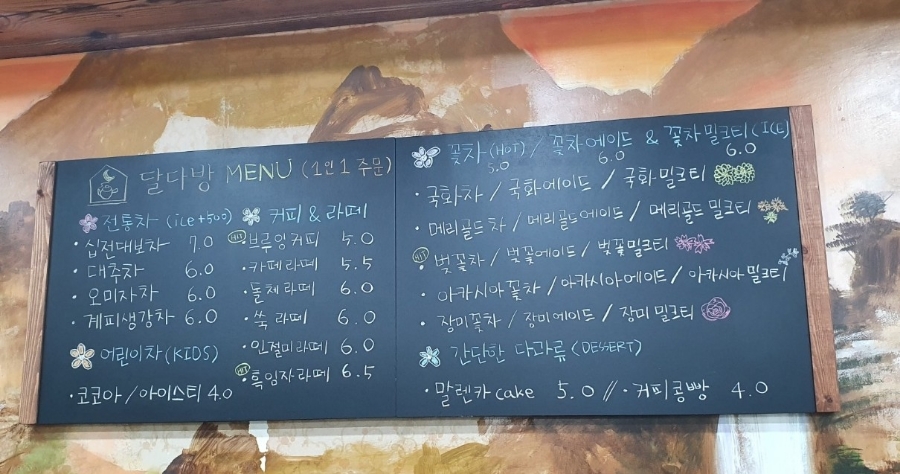 달다방 MENU (1인 1 주문)
전통차 (ice+500)
· 십전대보차 7.0
· 대추차 6.0
· 오미자차 6.0
· 계피생강차 6.0
어린이차 (KIDS)
· 코코아 / 아이스티 4.0
커피 & 라떼
HIT 브루잉커피 5.0
· 카페라떼 5.5
· 돌체라떼 6.0
· 쑥라떼 6.0
· 인절미라떼 6.0
HIT 흑임자라떼 6.5
꽃차 (HOT) / 꽃차에이드 & 꽃차밀크티 (ICE)
5.0 6.0 6.0
· 국화차 / 국화에이드 / 국화밀크티
· 메리골드차 / 메리골드에이드 / 메리골드 밀크티
HIT 벚꽃차 / 벚꽃에이드 / 벚꽃밀크티
· 아카시아꽃차 / 아카시아에이드 / 아카시아밀크티
· 장미꽃차 / 장미에이드 / 장미 밀크티
간단한 다과류 (DESSERT)
· 말렌카 cake 5.0 // · 커피콩빵 4.0